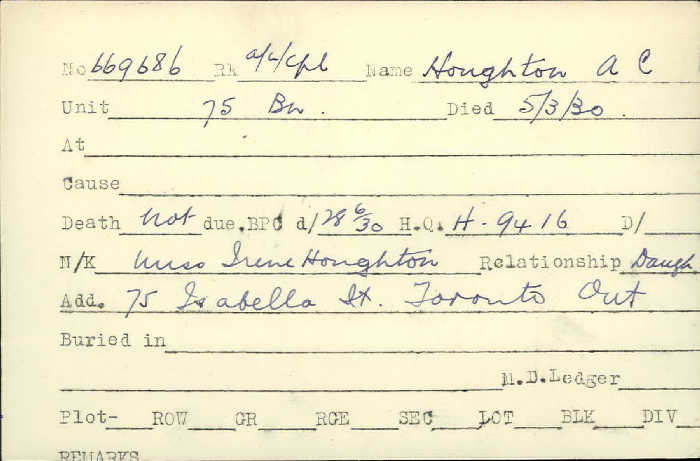 No 669686 Rk a/L/Cpl Name Houghton A C
Unit 75 Bn. Died 5/3/30.
At
Cause
Death Not due. BPC d/ 28 6/30 H.Q. H-9416 D/
N/K Miss Irene Houghton Relationship Daugh
Add. 75 Isabella St. Toronto Ont
Buried in
M.D.Ledger
Plot- ROW GR RGE SEC LOT BLK DIV
REMARKS